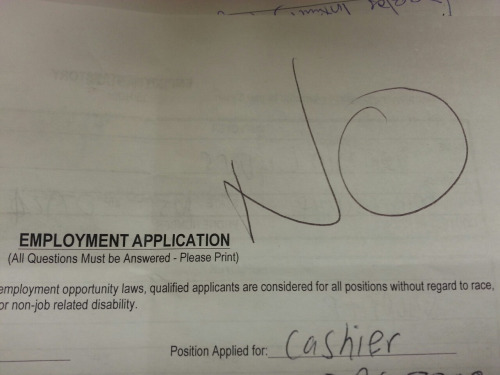 NO
EMPLOYMENT APPLICATION
(All Questions Must be Answered - Please Print)
employment opportunity laws, qualified applicants are considered for all positions without regard to race,
or non-job related disability.
Position Applied for: Cashier